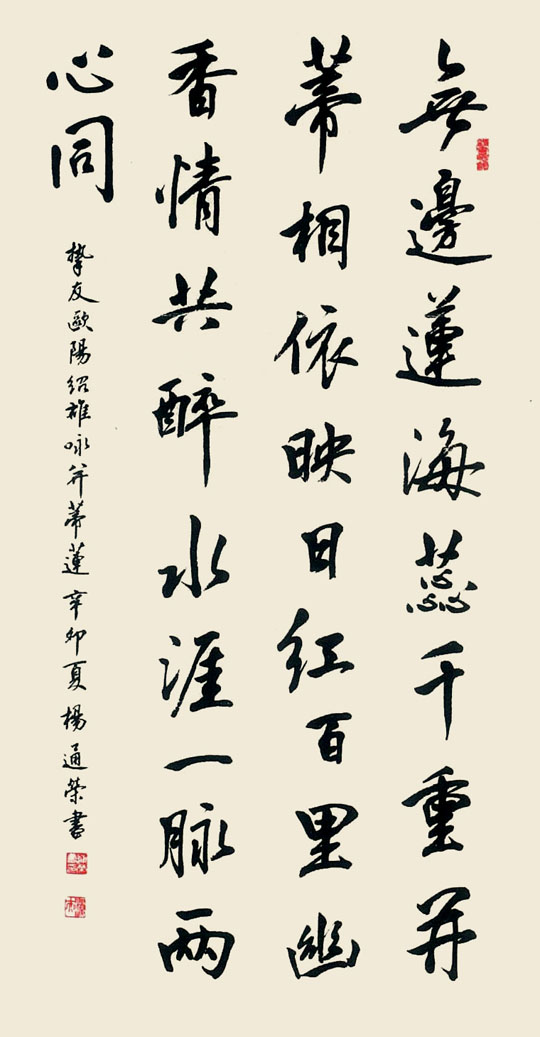 無邊蓮海蕊千重并
蒂相依映日红百里幽
香情共醉水涯一脉两
心同
摯友歐陽绍雄咏并蒂蓮辛卯夏楊通榮書